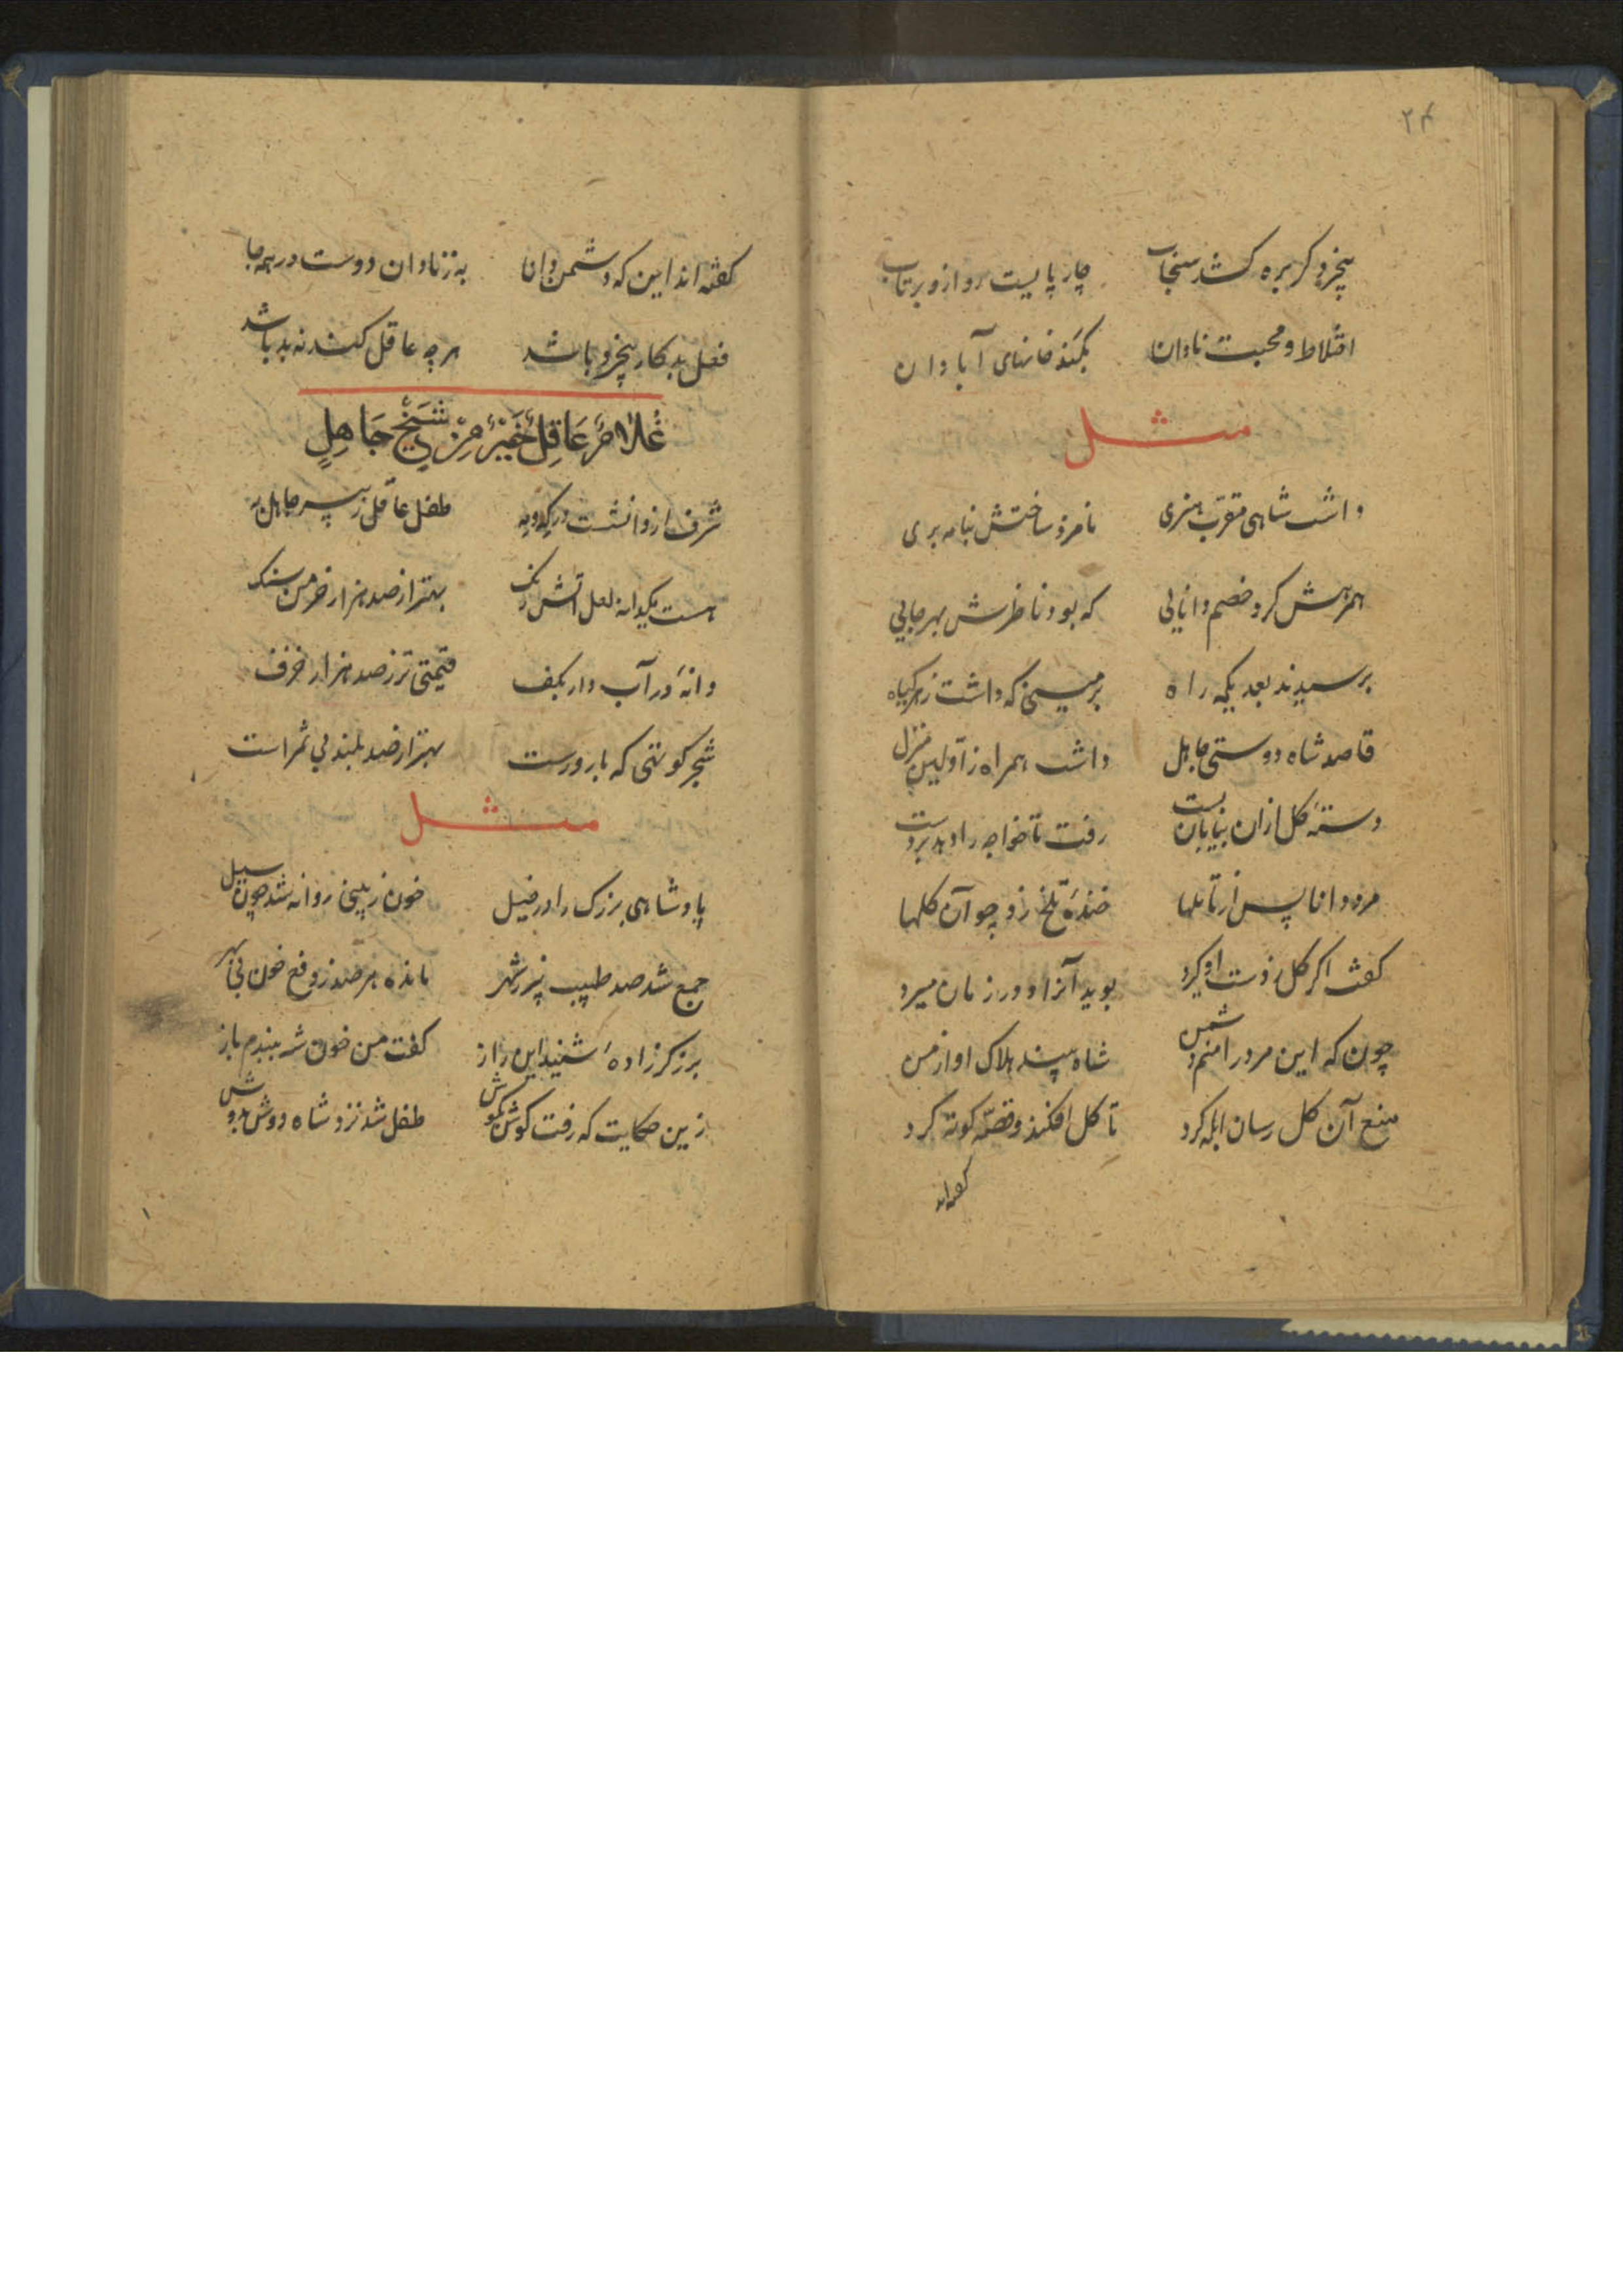 ۲۴
بیخرد گر بره کشد سنجاب چارپایست رو ازو برتاب
اختلاط و محبت نادان بکند خانهای آبادان
مثل
داشت شاهی مقرب هنری نامزد ساختش بنامه بری
همرهش کرد خصم دانایی که بود ناظرش بهر جایی
برسیدند بعد یکمه راه برمینی که داشت زهر گیاه
قاصد شاه دوستی جاهل داشت همراه ز اولین منزل
دستهٔ گل ازان بیابان بست رفت تا خواجه را دهد بر دست
مرد دانا پس از تاملها خندهٔ تلخ زد چو آن گلها
گفت اگر گل ز دست او گیرد بوید آنرا و در زمان میرد
چون که این مرد را منم دشمن شاه بیند هلاک او از من
منع آن گل رسان ابله کرد تا گل افکند و قصه کوته کرد
گفته‌اند
گفته اند این که دشمن دانا به ز نادان دوست در همه جا
فعل بد کار بیخرد باشد هر چه عاقل کند نه بد باشد
غُلامٌ عَاقِلٌ خَیْرٌ مِنْ شَیْخٍ جَاهِلٍ
شرف از و انشست در که و مه طفل عاقل ز پیر جاهل به
هست یکدانه لعل آتش رنگ بهتر از صد هزار خرمن سنگ
دانهٔ در آب دار بکف قیمتی تر ز صد هزار خزف
شجر کوتهی که بارورست بهتر از صد بلند بی ثمر است
مثل
پادشاهی بزرگ را در خیل خون ز بینی روانه شد چون سیل
جمع شد صد طبیب نیز ز شهر مانده هر صد ز دفع خون بی بهر
برزگر زادهٔ شنید این راز گفت من خون شه ببندم باز
زین حکایت که رفت گوش بگوش طفل شد نزد شاه دوش بدوش